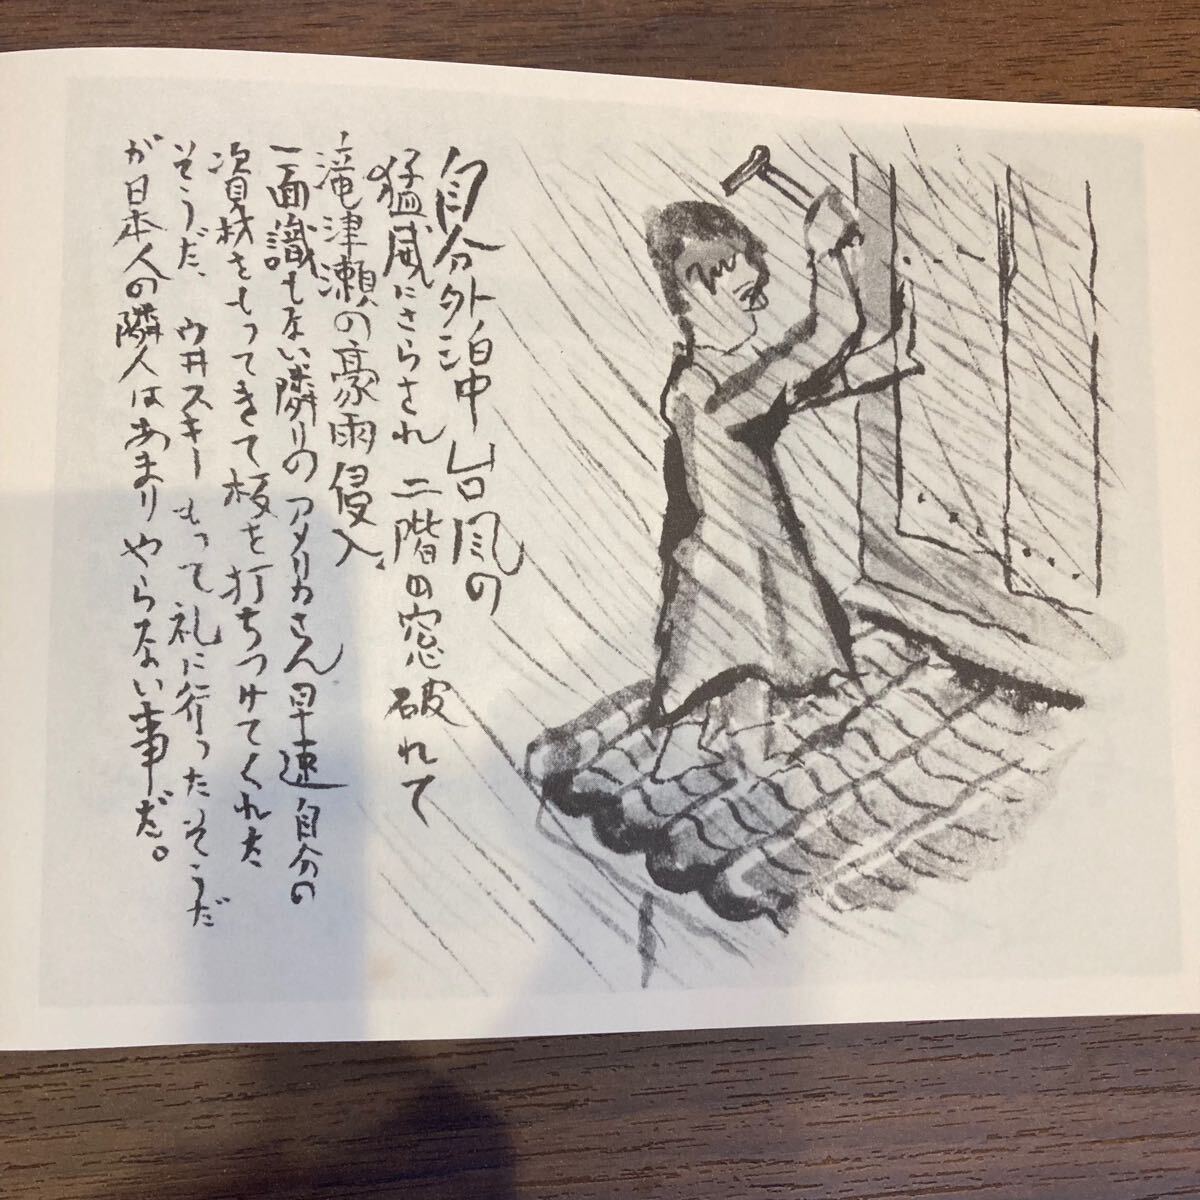 自分外泊中台風の
猛威にさらされ二階の窓破れて
滝津瀬の豪雨侵入、
一面識もない隣りのアメリカさん早速自分の
資材をもってきて板を打ちつけてくれた
そうだ、ウ井スキーもって礼に行ったそうだ
が日本人の隣人はあまりやらない事だ。